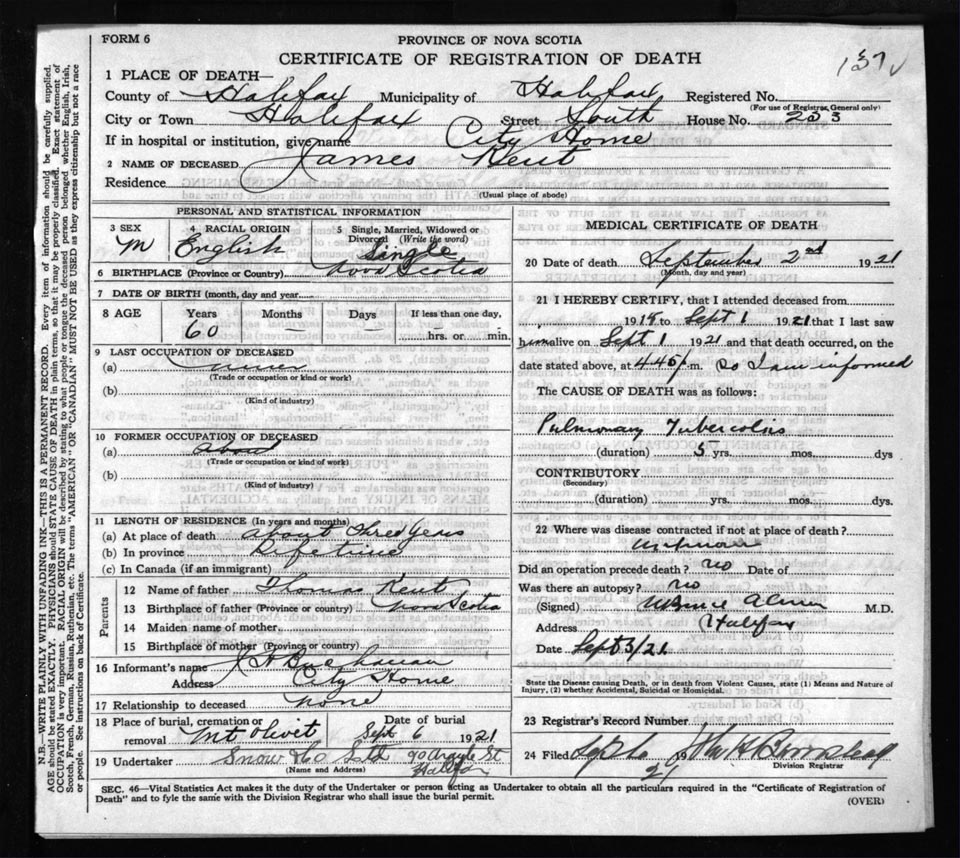 FORM 6
PROVINCE OF NOVA SCOTIA
CERTIFICATE OF REGISTRATION OF DEATH
1 PLACE OF DEATH—
County of Halifax Municipality of Halifax Registered No.
(For use of Registrar General only)
City or Town Halifax Street South House No. 253
If in hospital or institution, give name City Home
2 NAME OF DECEASED James Kent
Residence
(Usual place of abode)
PERSONAL AND STATISTICAL INFORMATION
3 SEX M
4 RACIAL ORIGIN English
5 Single, Married, Widowed or Divorced (Write the word) Single
6 BIRTHPLACE (Province or Country) Nova Scotia
7 DATE OF BIRTH (month, day and year)
8 AGE Years 60 Months — Days — If less than one day, hrs. or min.
9 LAST OCCUPATION OF DECEASED
(a)
(Trade or occupation or kind of work)
(b)
(Kind of industry)
10 FORMER OCCUPATION OF DECEASED
(a)
(Trade or occupation or kind of work)
(b)
(Kind of industry)
11 LENGTH OF RESIDENCE (In years and months)
(a) At place of death about Three Years
(b) In province Life time
(c) In Canada (if an immigrant)
Parents
12 Name of father Thomas Kent
13 Birthplace of father (Province or country) Nova Scotia
14 Maiden name of mother
15 Birthplace of mother (Province or country)
16 Informant's name
Address City Home
17 Relationship to deceased none
18 Place of burial, cremation or removal Mt Olivet
Date of burial Sept 6 1921
19 Undertaker Snow & Co Ltd 90 Argyle St
(Name and Address) Halifax
MEDICAL CERTIFICATE OF DEATH
20 Date of death September 2nd 1921
(Month, day and year)
21 I HEREBY CERTIFY, that I attended deceased from
1918 to Sept 1 1921 that I last saw
him alive on Sept 1 1921 and that death occurred, on the
date stated above, at 4.45 m. So I am informed
The CAUSE OF DEATH was as follows:
Pulmonary Tubercolsis
(duration) 5 yrs. mos. dys
CONTRIBUTORY
(Secondary)
(duration) yrs. mos. dys.
22 Where was disease contracted if not at place of death?
unknown
Did an operation precede death? no Date of
Was there an autopsy? no
(Signed) W Bruce Almon M.D.
Address Halifax
Date Sept 3/21
State the Disease causing Death, or in death from Violent Causes, state (1) Means and Nature of
Injury, (2) whether Accidental, Suicidal or Homicidal.
23 Registrar's Record Number
24 Filed Sept 6 1921
Division Registrar
SEC. 46—Vital Statistics Act makes it the duty of the Undertaker or person acting as Undertaker to obtain all the particulars required in the "Certificate of Registration of
Death" and to fyle the same with the Division Registrar who shall issue the burial permit.
(OVER)
N.B.—WRITE PLAINLY WITH UNFADING INK—THIS IS A PERMANENT RECORD. Every item of information should be carefully supplied.
AGE should be stated EXACTLY. PHYSICIANS should STATE CAUSE OF DEATH in plain terms, so that it may be properly classified. Exact statement of
OCCUPATION is very important. RACIAL ORIGIN will be described by stating to what people or tongue the deceased person belonged whether English, Irish,
Scotch, French, German, Russian, Ruthenian, etc. The terms "AMERICAN" OR "CANADIAN" MUST NOT BE USED as they express citizenship but not a race
or people. See instructions on back of Certificate.